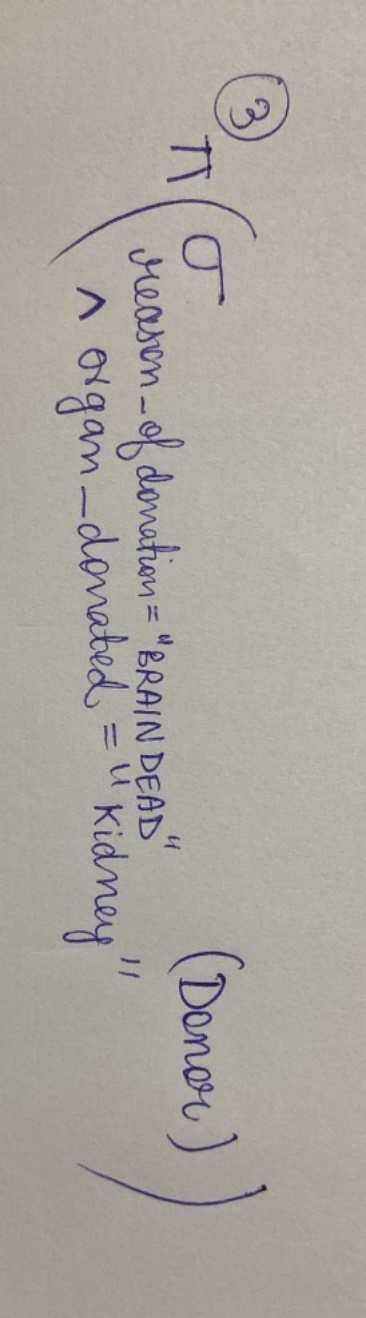 ③
π ( σ (Donor) )
reason_of donation = "BRAIN DEAD"
∧ organ_donated = "Kidney"